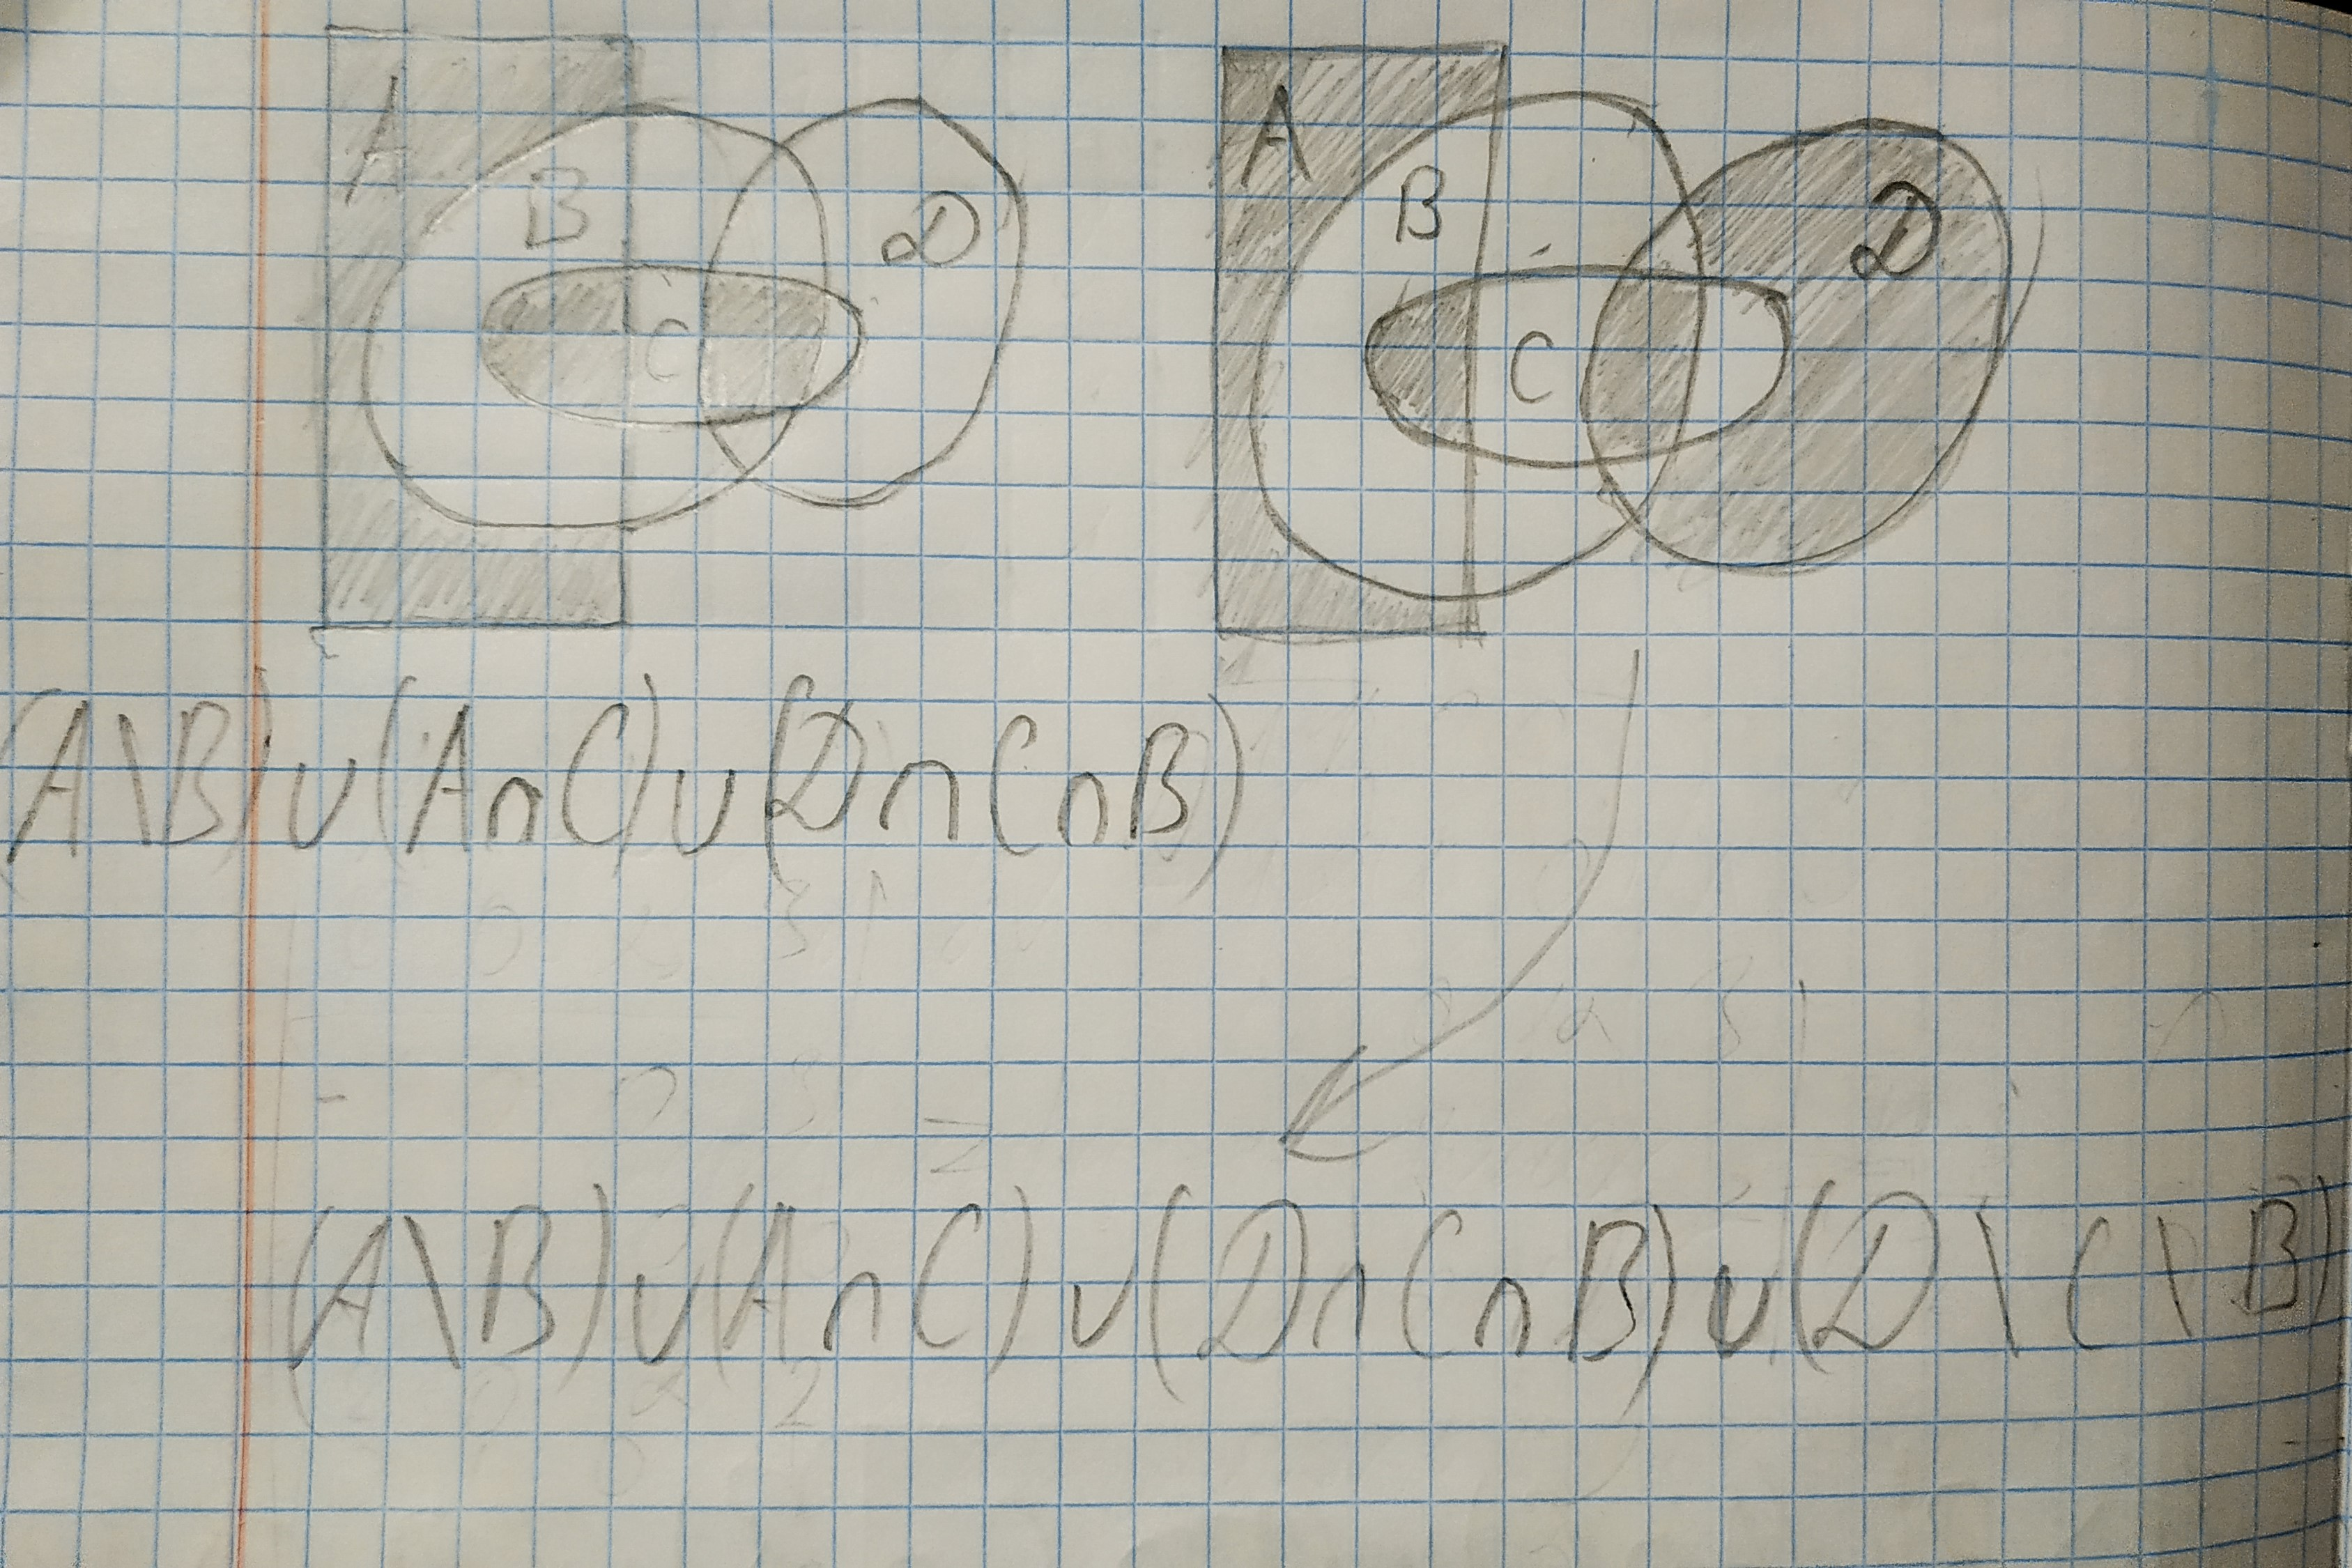 A B C D
A B C D
(A\B)∪(A∩C)∪(D∩C∩B)
(A\B)∪(A∩C)∪(D∩C∩B)∪(D\C\B)